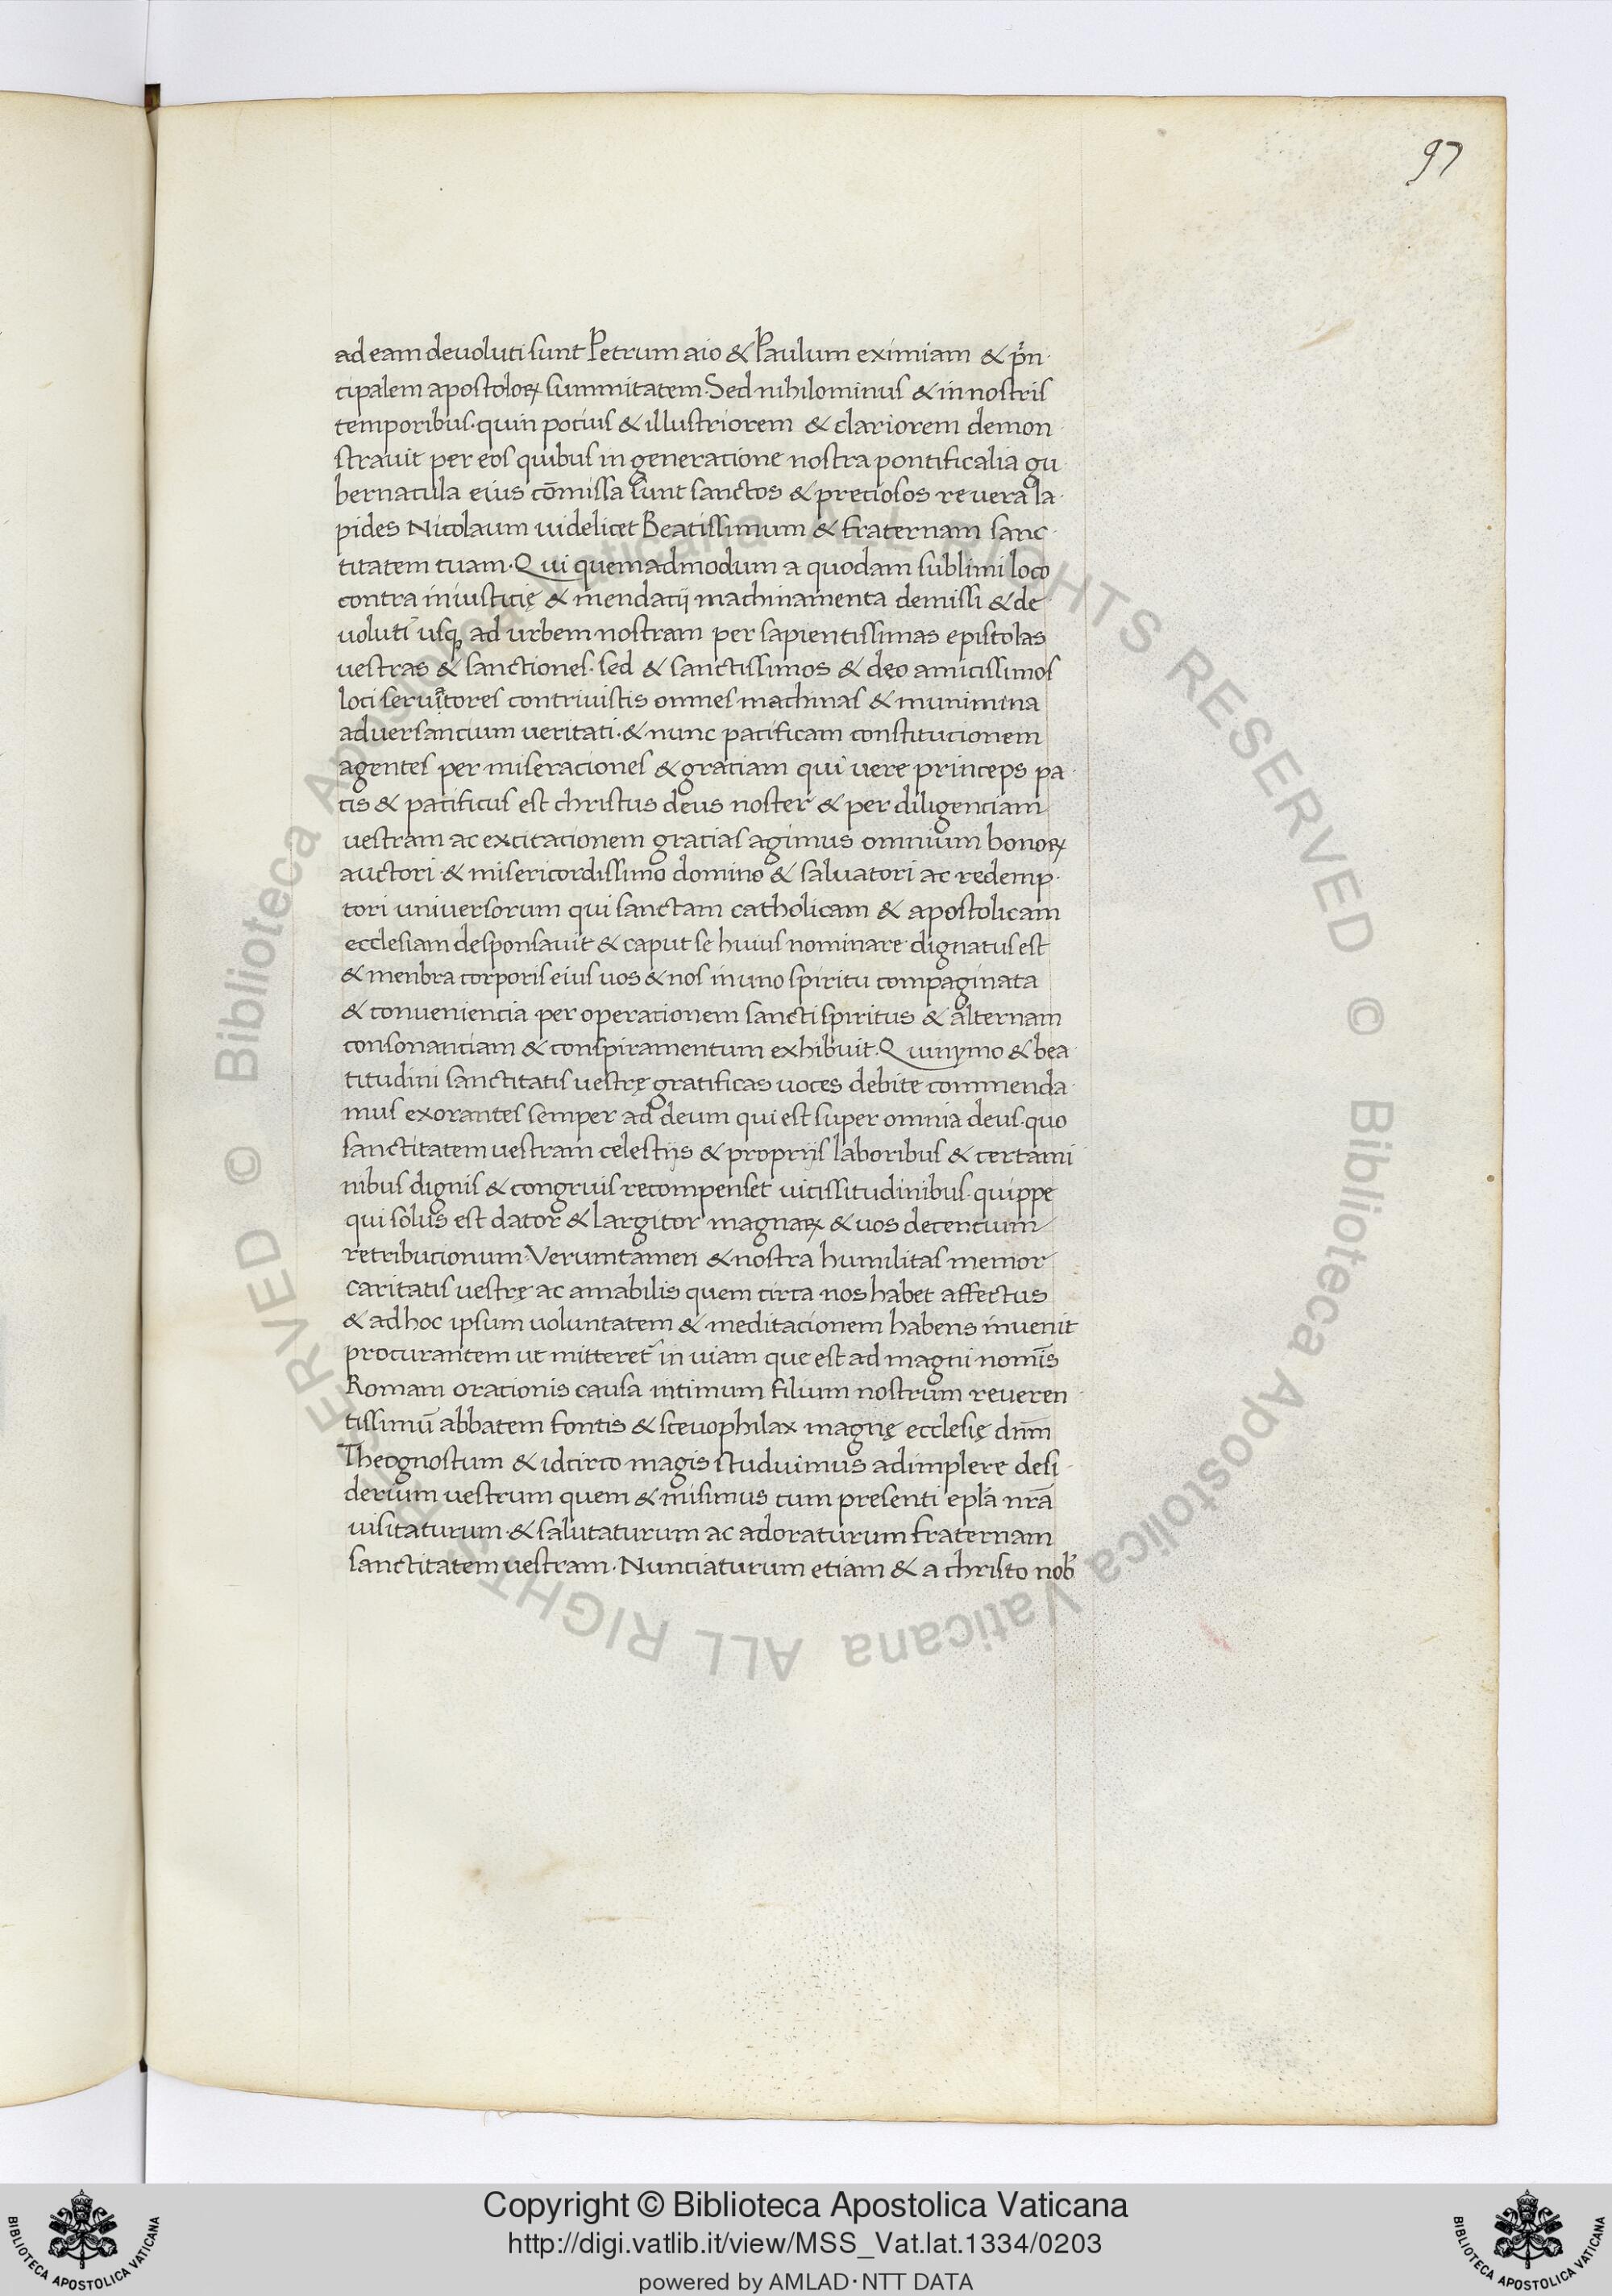 97
ad eam devoluti sunt Petrum aio & Paulum eximiam & p̄n
cipalem apostoloꝝ summitatem. Sed nihilominus & in nostris
temporibus. quin potius & illustriorem & clariorem demon
stravit per eos quibus in generatione nostra pontificalia gu
bernacula eius cōmissa sunt sanctos & preciosos re vera la
pides Nicolaum videlicet Beatissimum & fraternam sanc
titatem tuam. Qui quemadmodum a quodam sublimi loco
contra iniusticię & mendacij machinamenta demissi & de
voluti usqꝫ ad urbem nostram per sapientissimas epistolas
vestras & sanctiones. sed & sanctissimos & deo amicissimos
loci servatores contrivistis omnes machinas & munimina
adversantium veritati. & nunc pacificam constitucionem
agentes per miseraciones & gratiam qui vere princeps pa
cis & pacificus est christus deus noster & per diligenciam
vestram ac excitacionem gracias agimus omnium bonoꝝ
auctori & misericordissimo domino & salvatori ac redemp
tori universorum qui sanctam catholicam & apostolicam
ecclesiam desponsavit & caput se huius nominare dignatus est
& menbra corporis eius vos & nos in uno spiritu compaginata
& conveniencia per operationem sancti spiritus & alternam
consonanciam & conspiramentum exhibuit. Quinymo & bea
titudini sanctitatis vestrę gratificas voces debite commenda
mus exorantes semper ad deum qui est super omnia deus. quo
sanctitatem vestram celestijs & proprijs laboribus & certami
nibus dignis & congruis recompenset vicissitudinibus. quippe
qui solus est dator & largitor magnaꝝ & vos decentium
retribucionum. Verumtamen & nostra humilitas memor
caritatis vestrę ac amabilis quem circa nos habet affectus
& ad hoc ipsum voluntatem & meditacionem habens invenit
procurantem ut mitteret in viam que est ad magni nom̄is
Romam orationis causa intimum filium nostrum reveren
tissimū abbatem fontis & scevophilax magnę ecclesię dn̄m
Theognostum & idcirco magis studuimus adimplere desi
derium vestrum quem & misimus cum presenti epl̄a nr̄a
visitaturum & salutaturum ac adoraturum fraternam
sanctitatem vestram. Nunciaturum etiam & a christo nob̄
Biblioteca Apostolica Vaticana ALL RIGHTS RESERVED ©
Biblioteca Apostolica Vaticana ALL RIGHTS RESERVED ©
Copyright © Biblioteca Apostolica Vaticana
http://digi.vatlib.it/view/MSS_Vat.lat.1334/0203
powered by AMLAD·NTT DATA
BIBLIOTECA APOSTOLICA VATICANA
BIBLIOTECA APOSTOLICA VATICANA